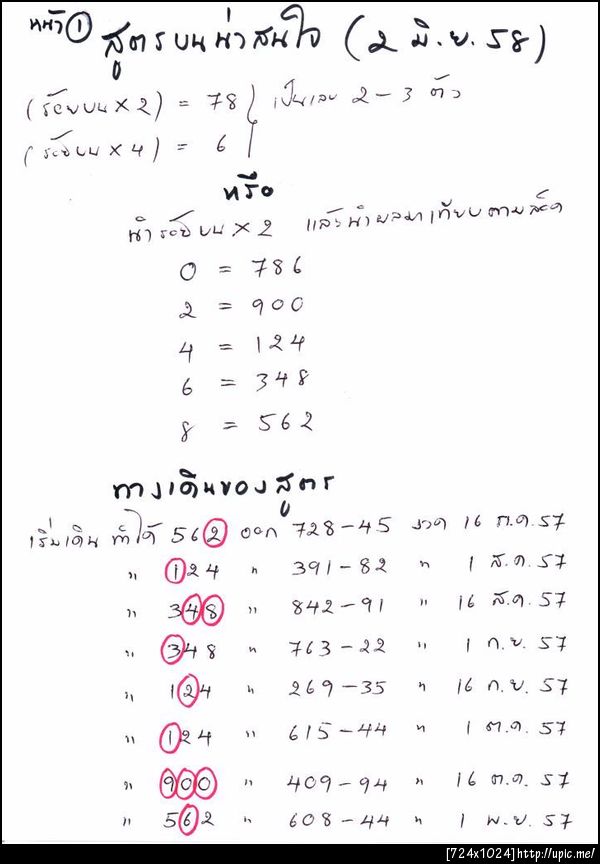 หน้า ①
สูตรบนน่าสนใจ (2 มิ.ย. 58)
(ร้อยบน × 2) = 78 } เป็นเลข 2 - 3 ตัว
(ร้อยบน × 4) = 6
หรือ
นำร้อยบน × 2 แล้วนำผลมาเทียบตามสูตร
0 = 786
2 = 900
4 = 124
6 = 348
8 = 562
ทางเดินของสูตร
เริ่มเดิน ทำได้ 562 ออก 728-45 งวด 16 ก.ค. 57
" 124 " 391-82 " 1 ส.ค. 57
" 348 " 842-91 " 16 ส.ค. 57
" 348 " 763-22 " 1 ก.ย. 57
" 124 " 269-35 " 16 ก.ย. 57
" 124 " 615-44 " 1 ต.ค. 57
" 900 " 409-94 " 16 ต.ค. 57
" 562 " 608-44 " 1 พ.ย. 57
[724x1024]http://upic.me/